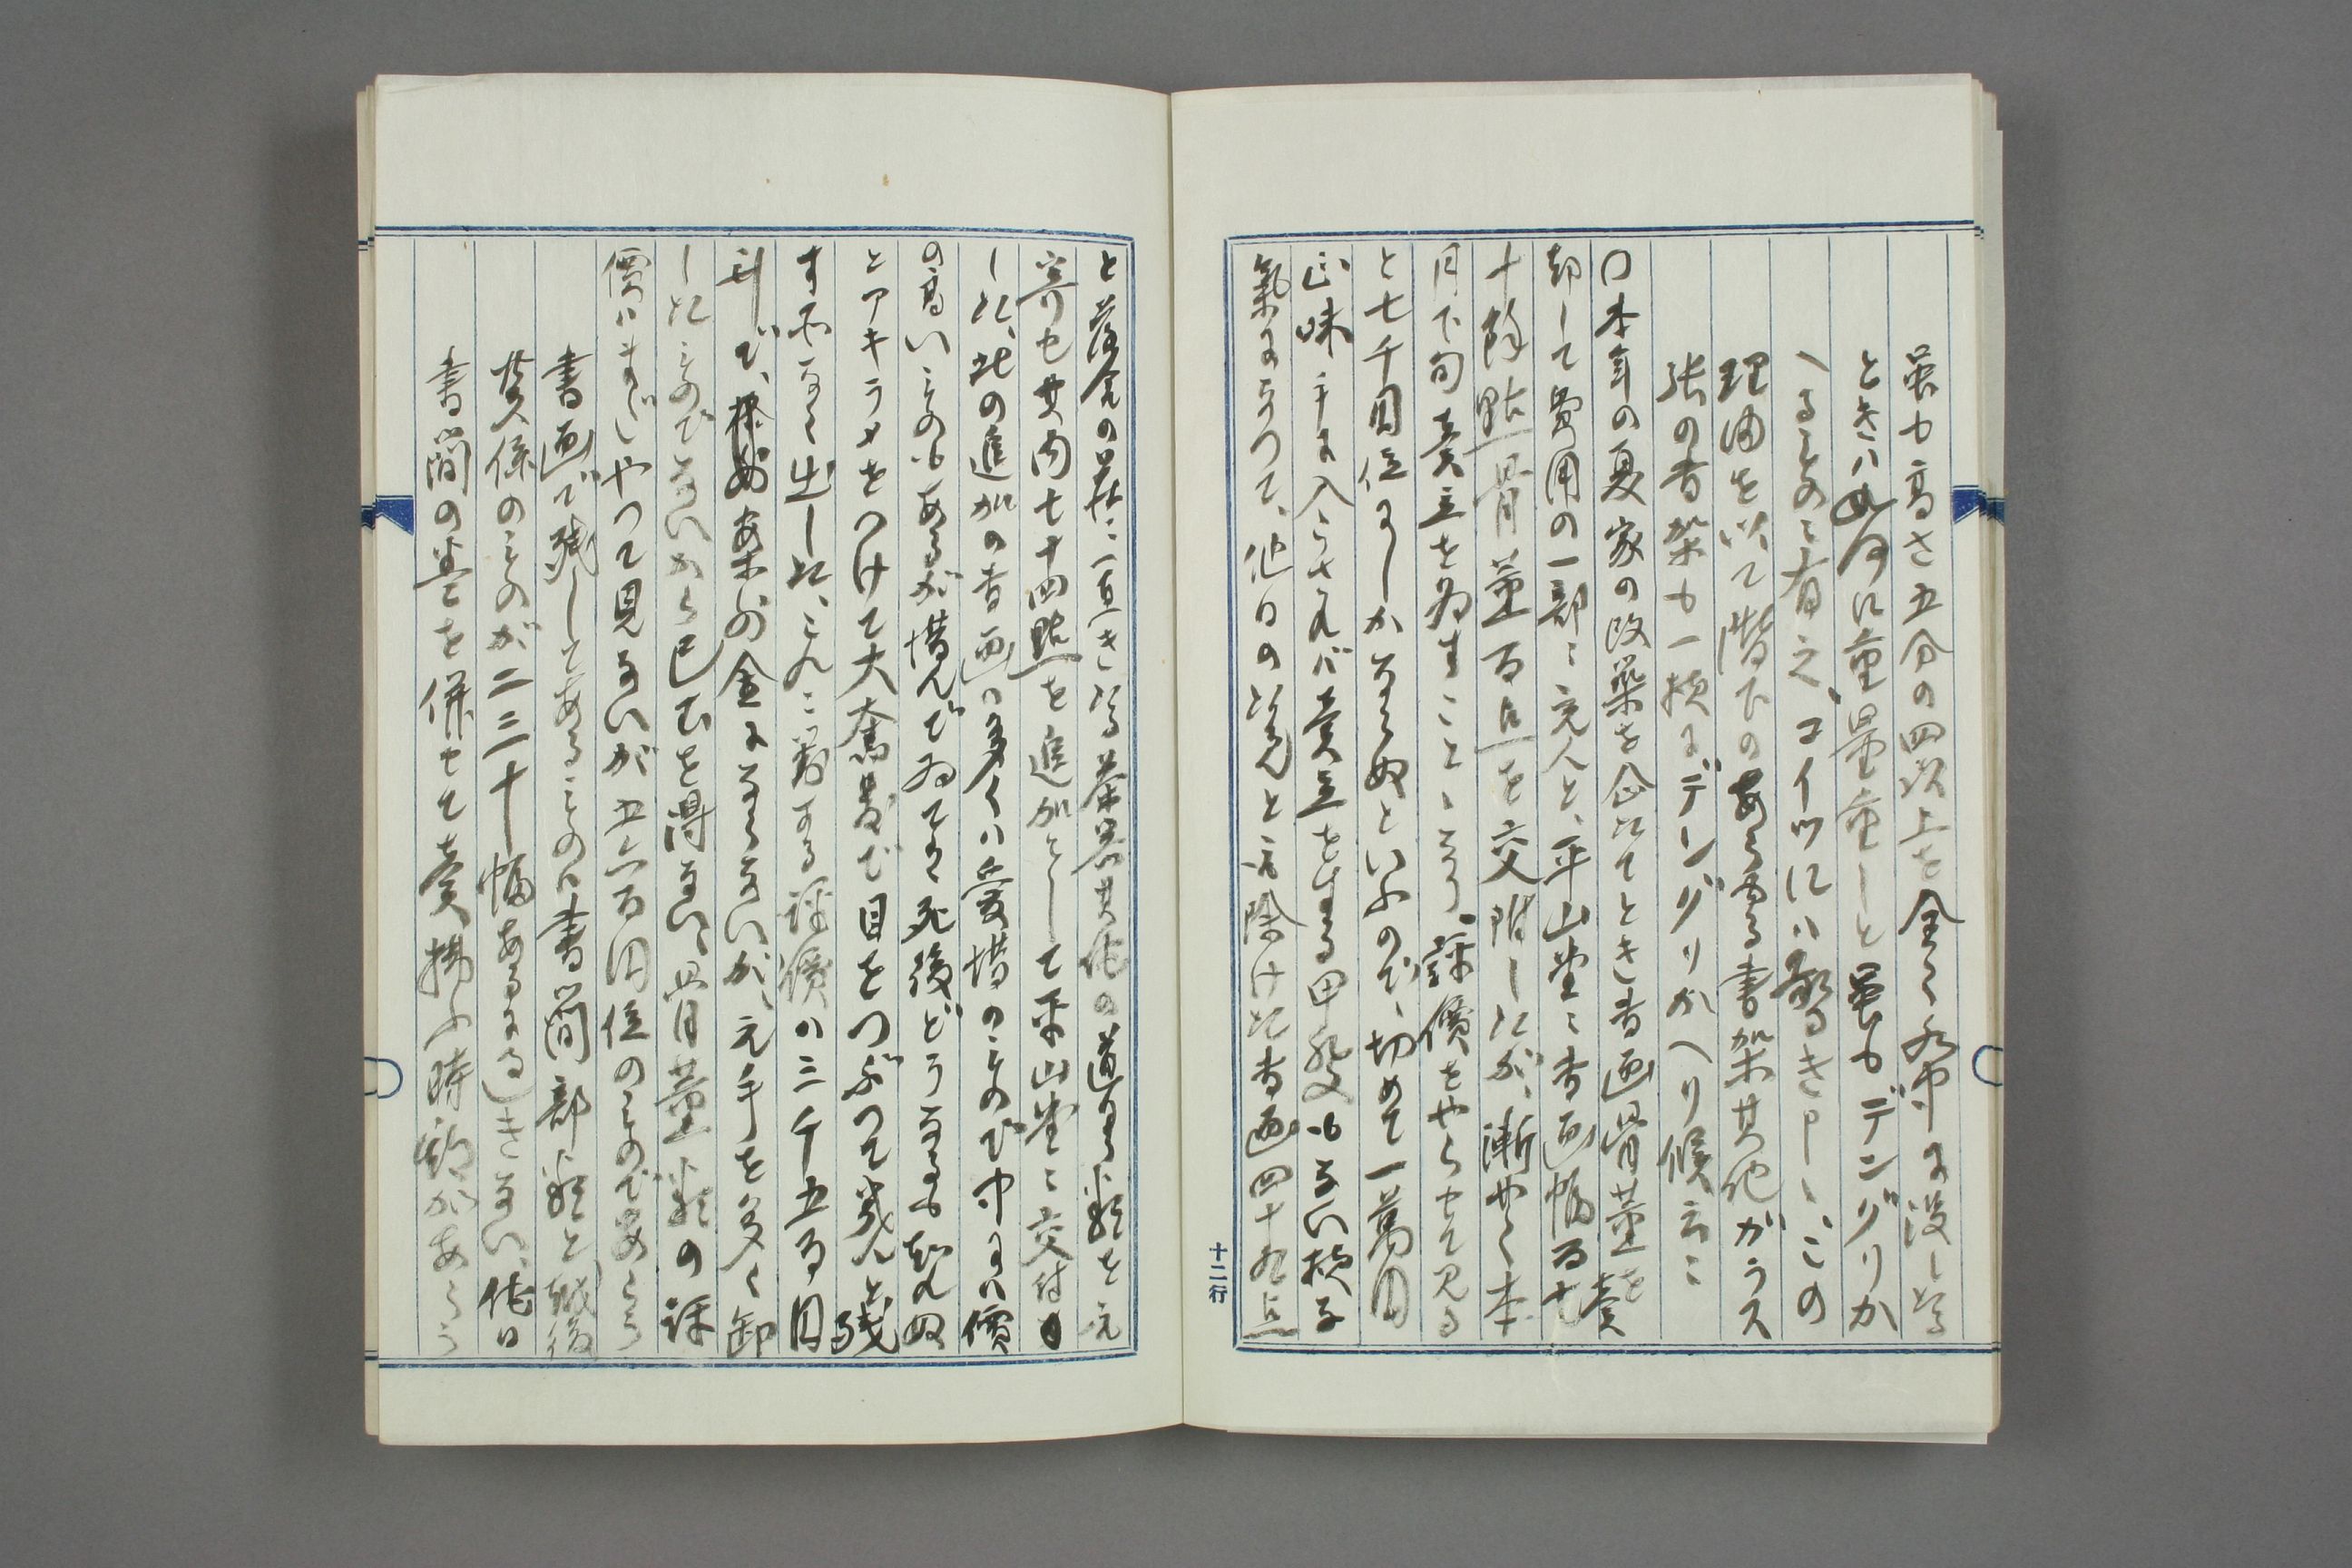 蛍も高さ五分の四以上を全く水中に没しゐる
ときハ如何に重量重しと蛍もデングリか
へるものに有之、コイツにハ驚き申し、この
理由を以て階下のあらゆる書架其他ガラス
張の書架も一様にデングリがへり候云々
〇本年の夏家の改築を企てたとき書画骨董を賣
却して費用の一部に充んと、平山堂に書画幅百七
十餘點骨董百点を交附したが、漸やく本
月下旬賣立を為すことゝなり、評價をやらせて見る
と七千円位にしかならぬといふので、切めて一萬円
正味手に入らざれバ賣立をする甲斐もない様な
氣になつて、他日の必要と取除けた書画四十九点
と落合の荘に置きある茶器其他の道具類を元
寄せ其内七十四點を追加として平山堂に交付し
した、此の追加の書画ハ多くハ愛惜のもので中にハ價
の高いものもあるが惜んでゐてハ死後どうなるか知れぬ
とアキラメをつけて大奮発で目をつぶつて幾んど残
す所なく出した、これに対する評價ハ三千五百円
斗で、揉め案外の金にならないが、元手を多く卸
したものでないから已むを得ない、骨董類の評
價ハまだやつて見ないが五六百円位のものであらう
書画で残してあるものハ書簡部類と越後
関係のものが二三十幅あるにすぎない、他日
書簡の巻を併せて賣拂ふ時節があらう
十二行